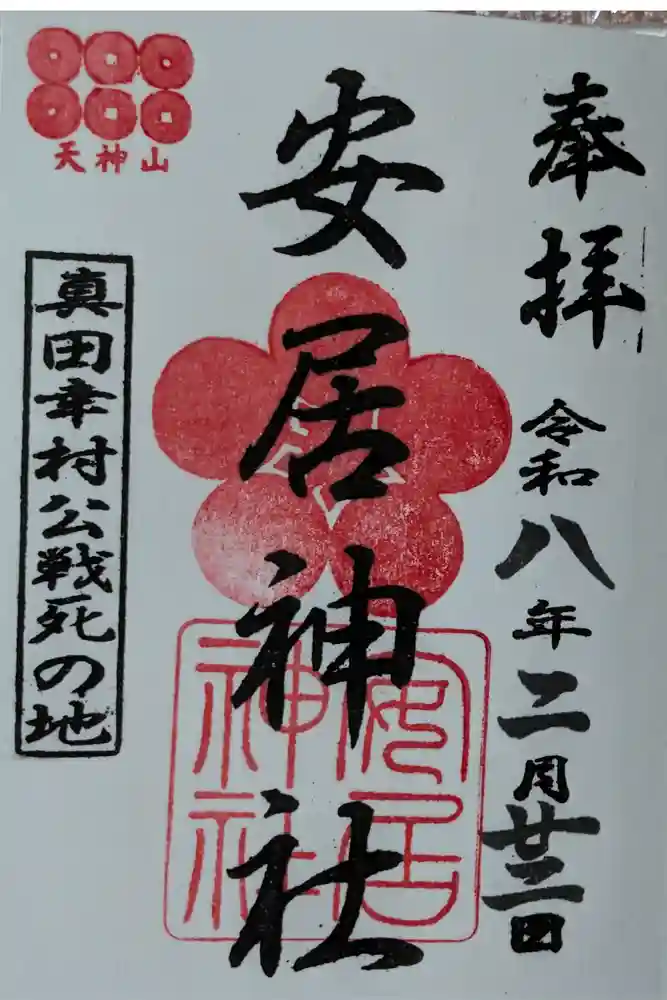 奉拝
令和八年二月廿二日
安居神社
安居神社
天神山
真田幸村公戦死の地